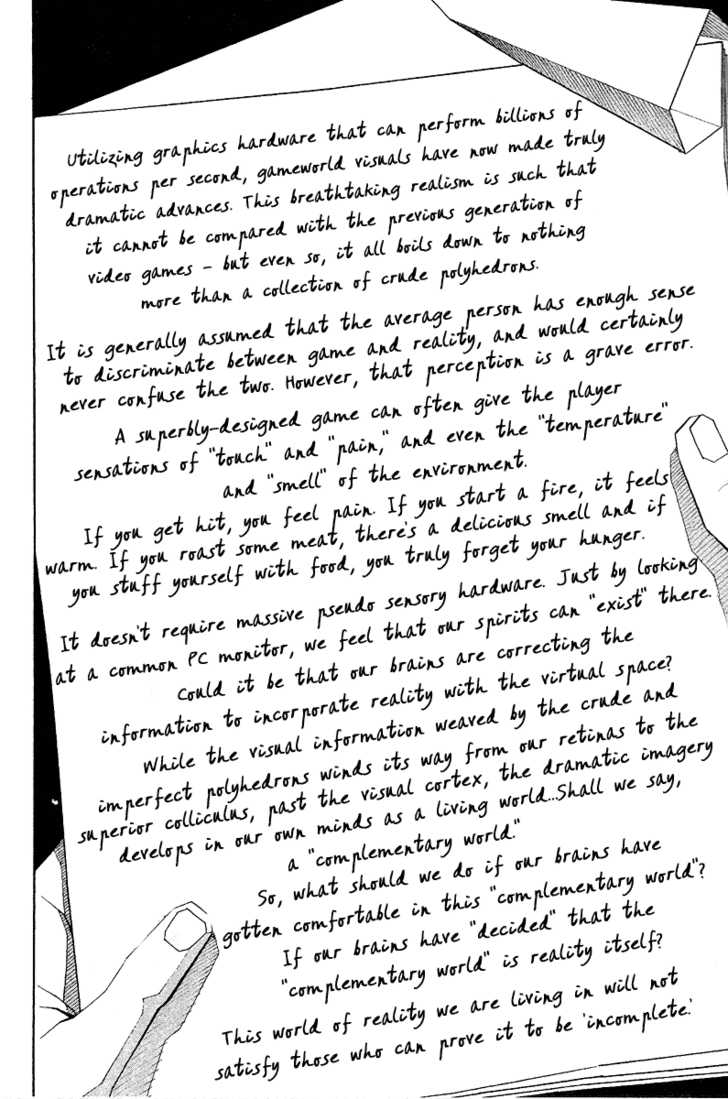 Utilizing graphics hardware that can perform billions of
operations per second, gameworld visuals have now made truly
dramatic advances. This breathtaking realism is such that
it cannot be compared with the previous generation of
video games – but even so, it all boils down to nothing
more than a collection of crude polyhedrons.
It is generally assumed that the average person has enough sense
to discriminate between game and reality, and would certainly
never confuse the two. However, that perception is a grave error.
A superbly-designed game can often give the player
sensations of "touch" and "pain," and even the "temperature"
and "smell" of the environment.
If you get hit, you feel pain. If you start a fire, it feels
warm. If you roast some meat, there's a delicious smell and if
you stuff yourself with food, you truly forget your hunger.
It doesn't require massive pseudo sensory hardware. Just by looking
at a common PC monitor, we feel that our spirits can "exist" there.
Could it be that our brains are correcting the
information to incorporate reality with the virtual space?
While the visual information weaved by the crude and
imperfect polyhedrons winds its way from our retinas to the
superior colliculus, past the visual cortex, the dramatic imagery
develops in our own minds as a living world...Shall we say,
a "complementary world."
So, what should we do if our brains have
gotten comfortable in this "complementary world"?
If our brains have "decided" that the
"complementary world" is reality itself?
This world of reality we are living in will not
satisfy those who can prove it to be 'incomplete.'